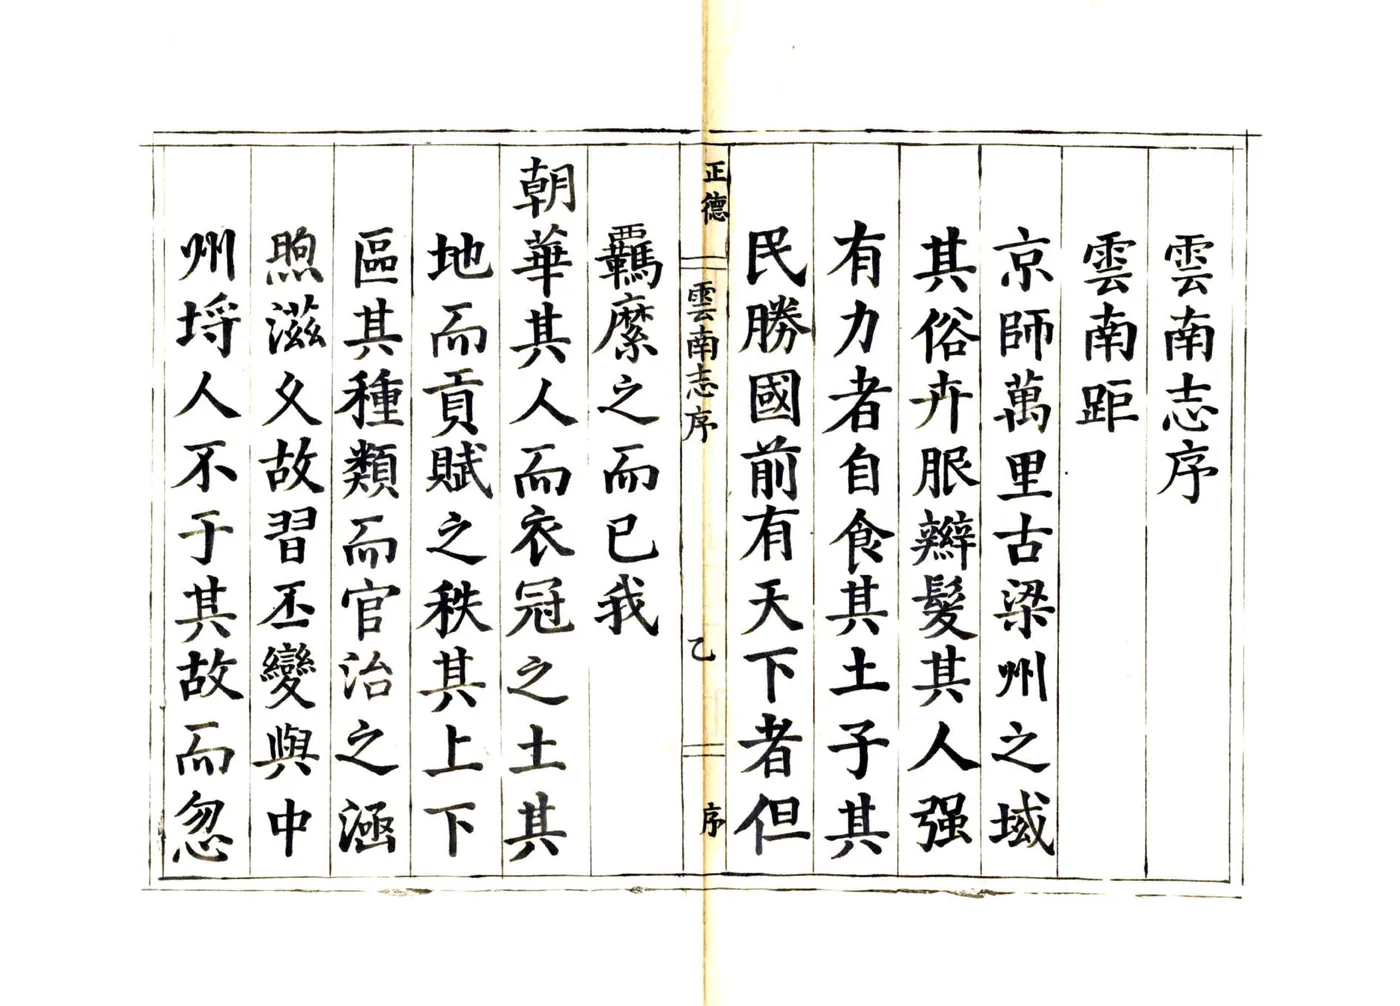 雲南志序
雲南距
京師萬里古梁州之域
其俗卉服辮髮其人强
有力者自食其土子其
民勝國前有天下者但
正德
雲南志序
乙
序
羈縻之而已我
朝華其人而衣冠之土其
地而貢賦之秩其上下
區其種類而官治之涵
煦滋久故習丕變與中
州埒人不于其故而忽